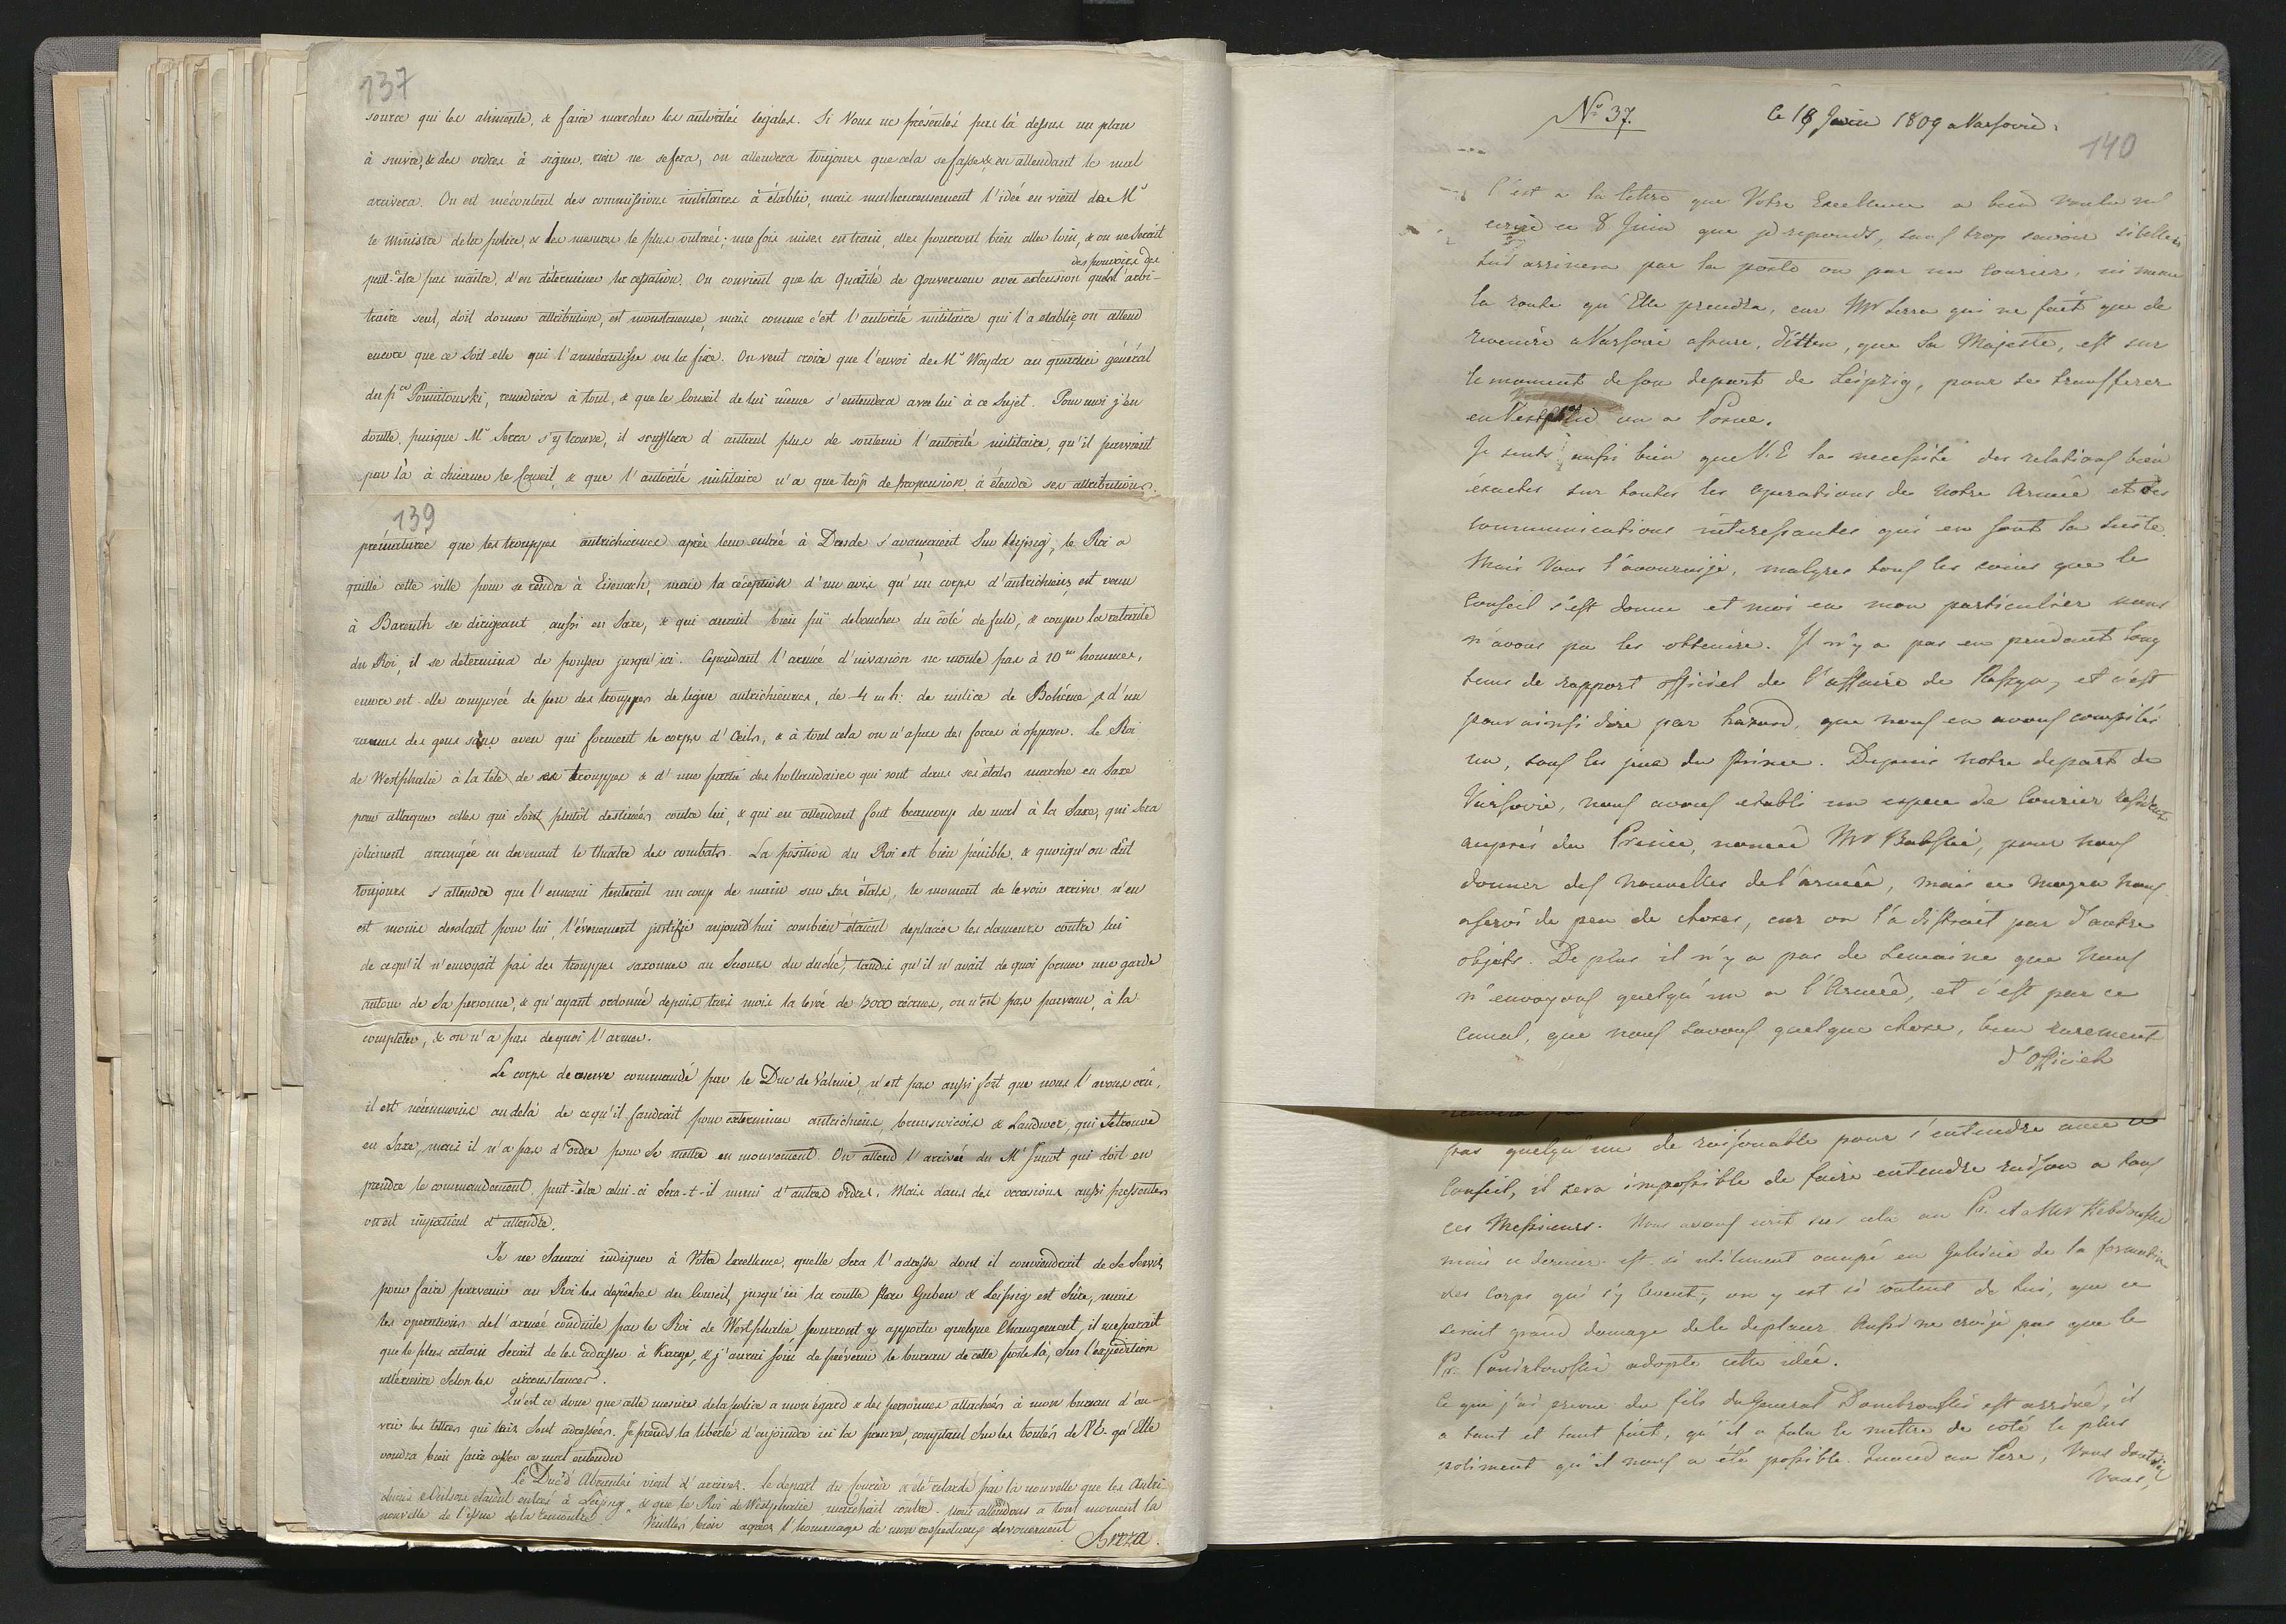 137
source qui les alimente, & faire marcher les autorités légales. Si Vous ne présentés pas là dessus un plan
à suivre, & des ordres à signer, rien ne se fera, on attendra toujours que cela se fasse & en attendant le mal
arrivera. On est mécontent des commissions militaires à établir, mais malheureusement l'idée en vient de Mr
le Ministre de la police, & les mesures le plus outrées; une fois mises en train, elles pourront bien aller loin, & on ne serait
des pouvoirs que
peut-être pas maître, d'en déterminer la cessation. On convient que la Qualité de Gouverneur avec extension l'arbi-
traire seul, doit donner attribution, est monstrueuse, mais comme c'est l'autorité militaire qui l'a etablie, on attend
encore que ce soit elle qui l'anéantisse ou la fixe. On veut croire que l'envoi de Mr Wayda au quartier général
du pce Poniatowski, remediera à tout, & que le Conseil de lui même s'entendra avec lui à ce sujet. Pour moi j'en
doutte, puisque Mr Serra s'y trouve, il soufflera d'autant plus de soutenir l'autorité militaire, qu'il parvient
par là à chicaner le Conseil, & que l'autorité militaire n'a que trop de propension à étendre ses attributions.
139
prématurée que les trouppes autrichiennes après leur entrée à Dresde s'avançaient sur Leipzig, le Roi a
quitté cette ville pour se rendre à Eisenach, mais la réception d'un avis qu'un corps d'autrichiens est venu
à Bareuth se dirigeant aussi en Saxe, & qui aurait bien pû deboucher du côté de fulde, & couper la retraite
du Roi, il se determina de pousser jusqu'ici. Cependant l'armée d'invasion ne monte pas à 10m hommes,
encore est elle composée de peu des trouppes de ligne autrichiennes, de 4 m h: de milice de Bohême, & d'un
ramas des gens sans aveu qui forment le corps d'Oels, & à tout cela on n'a pas des forces à opposer. Le Roi
de Westphalie à la tête de ses trouppes & d'une partie des hollandaises qui sont dans ses états marche en Saxe
pour attaquer celles qui sont plutôt destinées contre lui, & qui en attendant font beaucoup de mal à la Saxe, qui sera
joliement arrangée en devenant le theatre des combats. La position du Roi est bien pénible, & quoiqu'on dût
toujours s'attendre que l'ennemi tenterait un coup de main sur ses états, le moment de le voir arriver n'en
est moins desolant pour lui, l'évenement justifie aujourd'hui combien étaient deplacées les clameurs contre lui
de ce qu'il n'envoyait pas des trouppes saxonnes au secours du duché, tandis qu'il n'avait de quoi former une garde
autour de sa personne, & qu'ayant ordonné depuis trois mois la levée de 3000 récrues, on n'est pas parvenu, à la
completer, & on n'a pas de quoi l'armer.
Le corps de reserve commandé par le Duc de Valmie, n'est pas aussi fort que nous l'avons crû,
il est néanmoins au delà de ce qu'il faudrait pour exterminer autrichiens, brunswicois & Landwer, qui se trouve
en Saxe, mais il n'a pas d'ordre pour se mettre en mouvement. On attend l'arrivée du Mr Junot qui doit en
prendre le commandement, peut-être celui-ci sera-t-il muni d'autres ordres. Mais dans des occasions aussi pressentes
on est impatient d'attendre.
Je ne saurai indiquer à Votre Excellence, quelle sera l'adresse dont il conviendrait de se servir,
pour faire parvenir au Roi les dépêches du Conseil, jusqu'ici la routte par Guben & Leipzig est sûre, mais
les operations de l'armée conduite par le Roi de Westphalie pourront y apporter quelque Changement, il me parait
que le plus certain serait de les adresser à Karge, & j'aurai soin de prévenir le bureau de cette poste là, sur l'expédition
ultérieure selon les circonstances.
Qu'est ce donc que cette mesure de la police a mon égard & des personnes attachées à mon bureau d'ou-
vrir les lettres qui leur sont adressées. Je prends la liberté d'enjoindre ici la preuve, comptant sur les bontés de V.E. qu'Elle
voudra bien faire cesser ce mal entendu
Le Duc d'Abrantès vient d'arriver. Le depart du Courier a été retardé par la nouvelle que les Autri-
chiens étaient entrés à Leipzig & que le Roi de Westphalie marchait contre. nous attendons a tout moment la
nouvelle de l'issue de la rencontre. Veuillez bien agréer l'homenage de mon respectueux devouement
Breza
No 37. Ce 18 Juin 1809 a Varsovie.
140
C'est a la lettre que Votre Excellence a bien voulu m'
ecrire ce 8 Juin que je reponds, sans trop savoir si celle ci
lui arrivera par la poste ou par un Courier, ni meme
la route qu'Elle prendra, car Mr Serra qui ne fait que de
revenir a Varsovie assure, dit on, que Sa Majesté, est sur
le moment de son depart de Leipzig, pour se transferer
en ou a Posne.
Je sents aussi bien que V.E la necessité des relations bien
exactes sur toutes les operations de notre Armée et des
communications interessantes qui en font la suite.
Mais Vous l'avourai-je, malgres tous les soins que le
Conseil s'est donne et moi en mon particulier nous
n'avons pu les obtenir. Il n'y a pas eu pendant long
tems de rapport officiel de l'affaire de Raszyn, et c'est
pour ainsi dire par hazard, que nous en avons compilés
un, sous les jeux du Prince. Depuis notre depart de
Varsovie, nous avons etabli un espece de Courier resident
auprés du Prince, nommé Mr Babski, pour nous
donner des nouvelles de l'armée, mais ce moyen nous
a servi de peu de choses, car on l'a distrait par d'autre
objets. De plus il n'y a pas de Semaine que nous
n'envoyons quelqu'un a l'Armée, et c'est par ce
canal, que nous savons quelque chose, bien rarement
d'Officiel
pas quelqu'un de raisonable pour s'entendre avec le
Conseil, il sera impossible de faire entendre raison a tous
ces Messieurs. Nous avons ecrit sur cela au Pr. et a Mr
mais ce dernier est si utilement occupé en Galicie de la formation
des Corps qui s'y levent, on y est si content de lui, que ce
serait grand domage de le deplacer. Aussi ne crois-je pas que le
Pr. Poniatowski adopte cette idée.
Ce que j'ai prevu du fils du General Dombrowski est arrivé, il
a tant et tant fait, qu'il a falu le mettre de coté le plus
poliment qu'il nous a été possible. Quand au Pere, Vous
Vous,